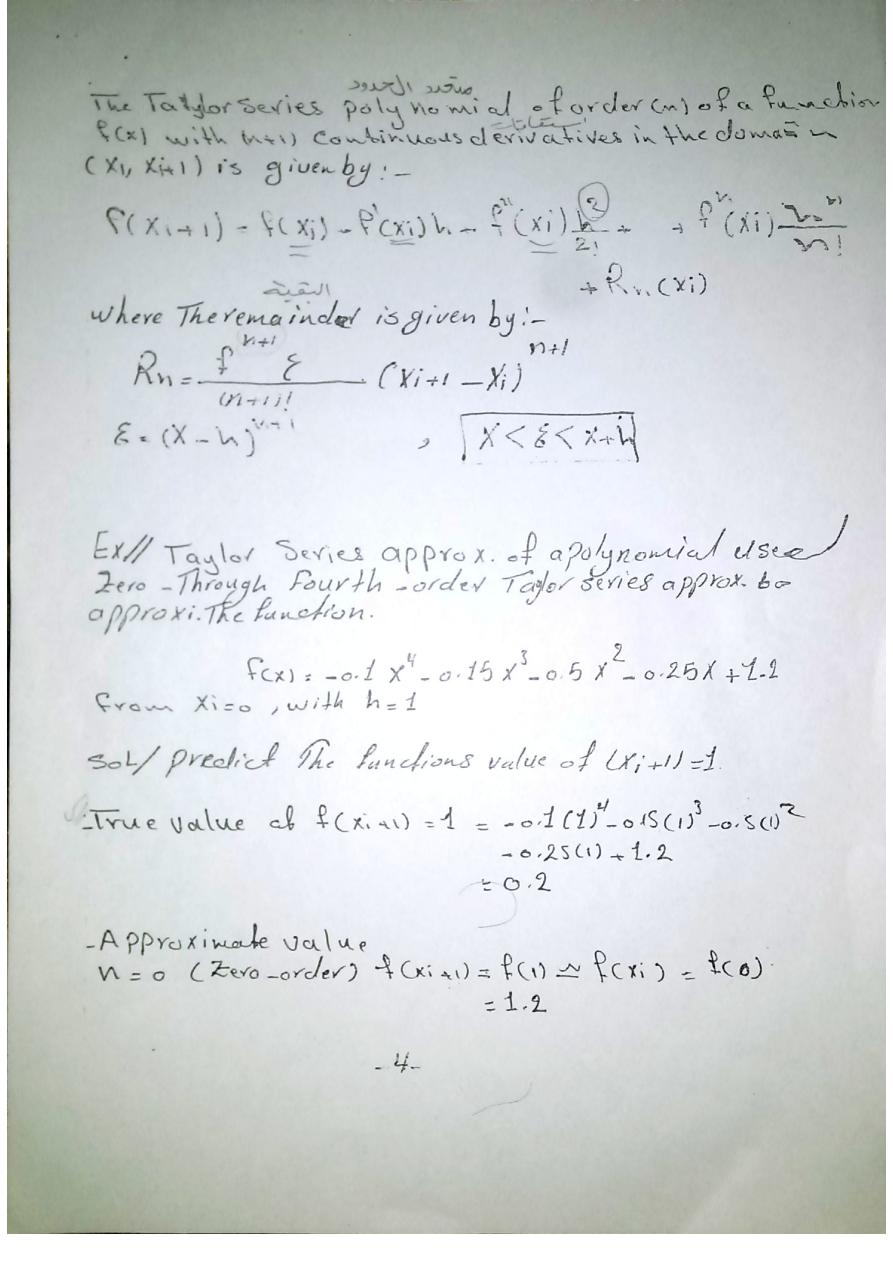 متعدد الحدود
The Taylor Series polynomial of order (n) of a function
مشتقات
f(x) with (n+1) continuous derivatives in the domain
(Xi, Xi+1) is given by:-
f(Xi+1) = f(Xi) + f'(Xi)h + f''(Xi) h²/2! + + fⁿ(Xi) hⁿ/n!
+ Rn(Xi)
البقية
where The remainder is given by:-
Rn = fⁿ⁺¹ ξ / (n+1)! (Xi+1 - Xi)ⁿ⁺¹
ξ = (X - h)ⁿ⁺¹ , X < ξ < x+h
Ex// Taylor Series approx. of a polynomial used
Zero - Through Fourth - order Taylor Series approx. to
approxi. The function.
f(x) = -0.1 X⁴ - 0.15 X³ - 0.5 X² - 0.25X + 1.2
from Xi=0 , with h=1
SoL/ predict The functions value of (Xi+1) = 1.
-True value of f(Xi+1) = 1 = -0.1(1)⁴ - 0.15(1)³ - 0.5(1)²
- 0.25(1) + 1.2
= 0.2
-Approximate value
n=0 (Zero-order) f(xi+1) = f(1) ≃ f(xi) = f(0)
= 1.2
-4-